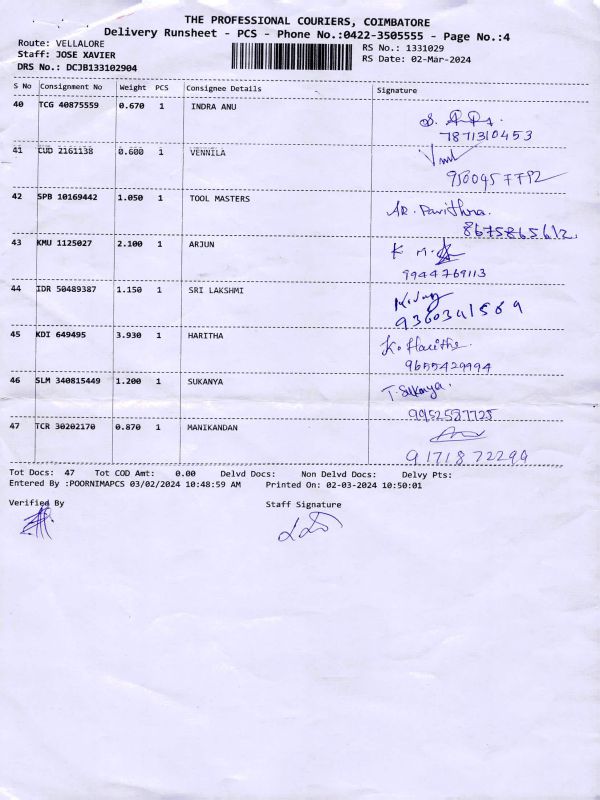 THE PROFESSIONAL COURIERS, COIMBATORE
Delivery Runsheet - PCS - Phone No.:0422-3505555 - Page No.:4
Route: VELLALORE RS No.: 1331029
Staff: JOSE XAVIER RS Date: 02-Mar-2024
DRS No.: DCJB133102904
S No Consignment No Weight PCS Consignee Details Signature
40 TCG 40875559 0.670 1 INDRA ANU
7871310453
41 CUD 2161138 0.600 1 VENNILA
9500457792
42 SPB 10169442 1.050 1 TOOL MASTERS
AR. Pavithra.
8675865612.
43 KMU 1125027 2.100 1 ARJUN
9944769113
44 IDR 50489387 1.150 1 SRI LAKSHMI
9360341569
45 KDI 649495 3.930 1 HARITHA
K. Haritha.
9655429994
46 SLM 340815449 1.200 1 SUKANYA
T. Sukanya.
9952587725
47 TCR 30202170 0.870 1 MANIKANDAN
9171872299
Tot Docs: 47 Tot COD Amt: 0.00 Delvd Docs: Non Delvd Docs: Delvy Pts:
Entered By :POORNIMAPCS 03/02/2024 10:48:59 AM Printed On: 02-03-2024 10:50:01
Verified By Staff Signature